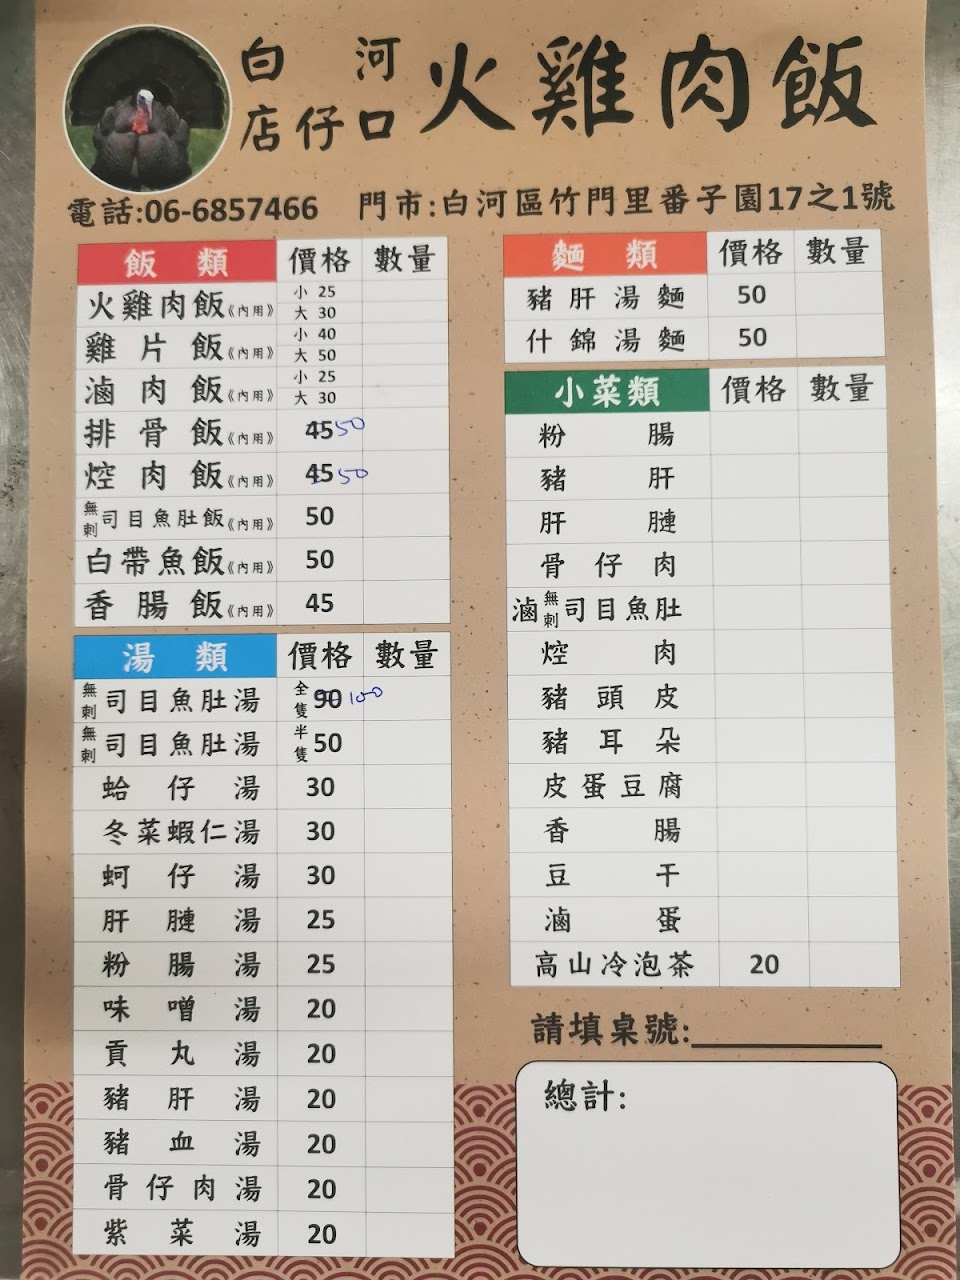 白河
店仔口
火雞肉飯
電話:06-6857466 門市:白河區竹門里番子園17之1號
飯類 價格 數量
火雞肉飯《內用》 小 25 大 30
雞片飯《內用》 小 40 大 50
滷肉飯《內用》 小 25 大 30
排骨飯《內用》 45 50
焢肉飯《內用》 45 50
無刺司目魚肚飯《內用》 50
白帶魚飯《內用》 50
香腸飯《內用》 45
湯類 價格 數量
無刺司目魚肚湯 全隻 90 100
無刺司目魚肚湯 半隻 50
蛤仔湯 30
冬菜蝦仁湯 30
蚵仔湯 30
肝腱湯 25
粉腸湯 25
味噌湯 20
貢丸湯 20
豬肝湯 20
豬血湯 20
骨仔肉湯 20
紫菜湯 20
麵類 價格 數量
豬肝湯麵 50
什錦湯麵 50
小菜類 價格 數量
粉腸
豬肝
肝腱
骨仔肉
滷無刺司目魚肚
焢肉
豬頭皮
豬耳朵
皮蛋豆腐
香腸
豆干
滷蛋
高山冷泡茶 20
請填桌號:
總計: